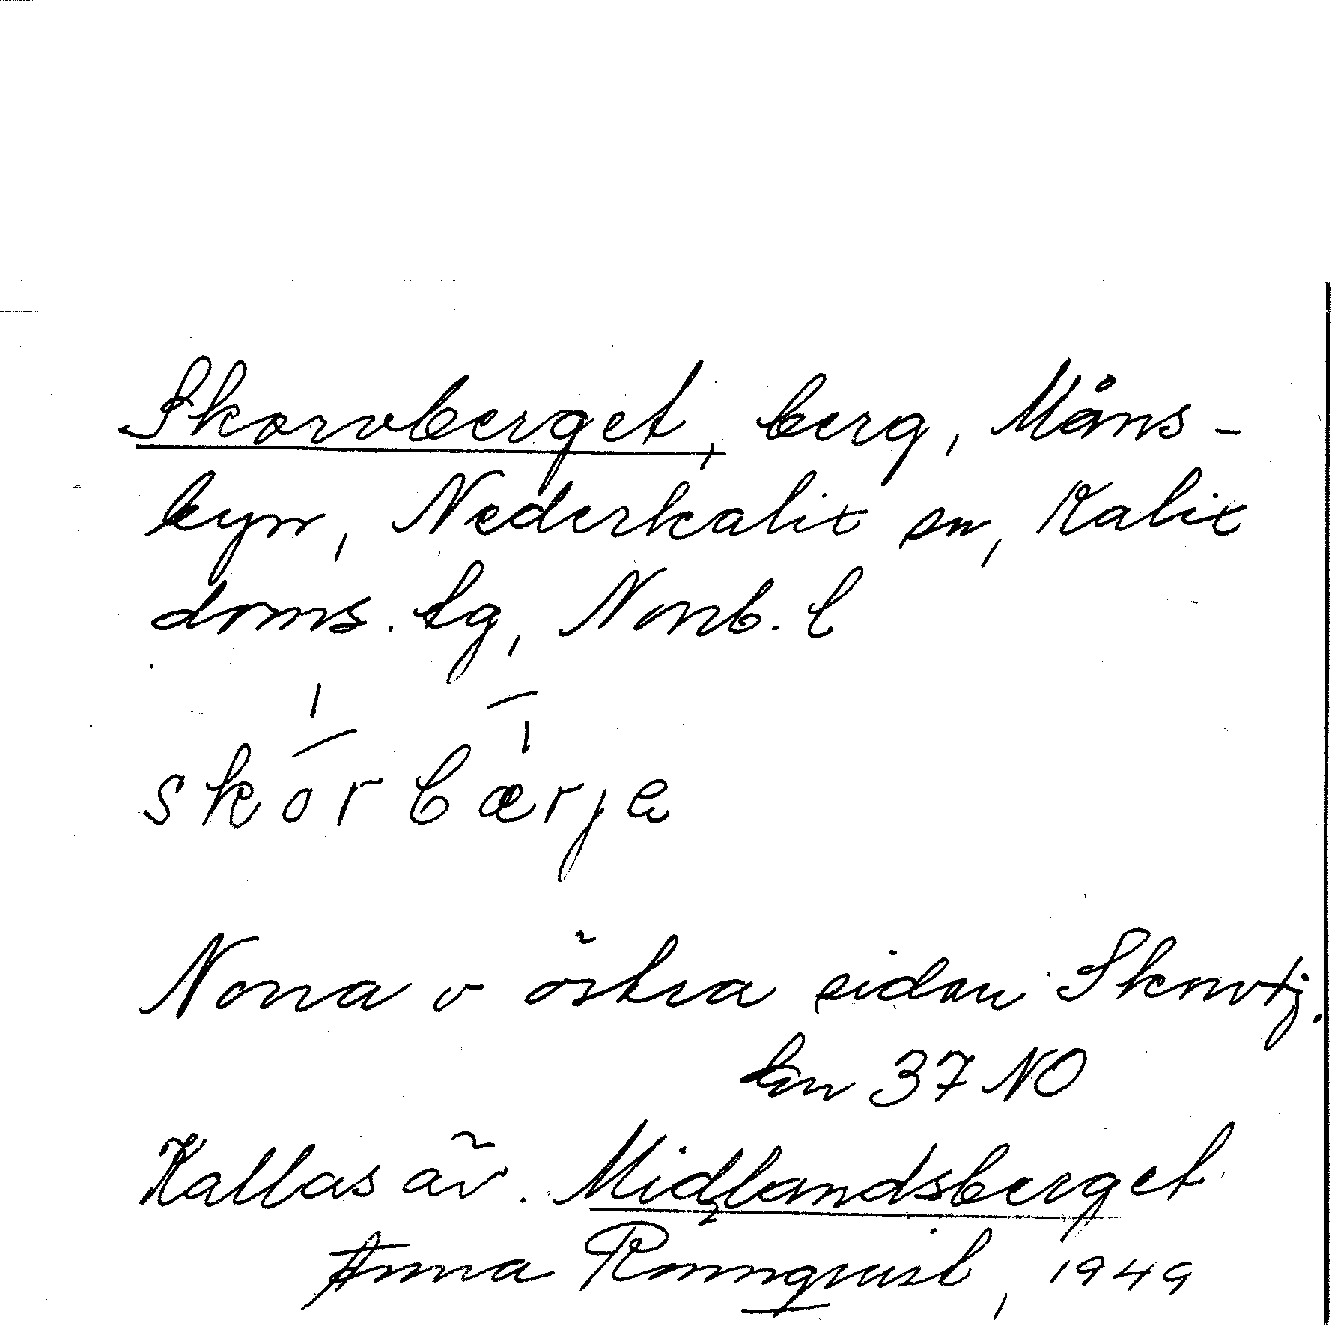 Skorvberget, berg, Måns-
byn, Nederkalix sn, Kalix
doms. lg, Norrb. l
skórbærje
Norra o östra sidan Skorvtj.
bm 37 NO
Kallas äv. Midlandsberget
Anna Rönnqvist, 1949